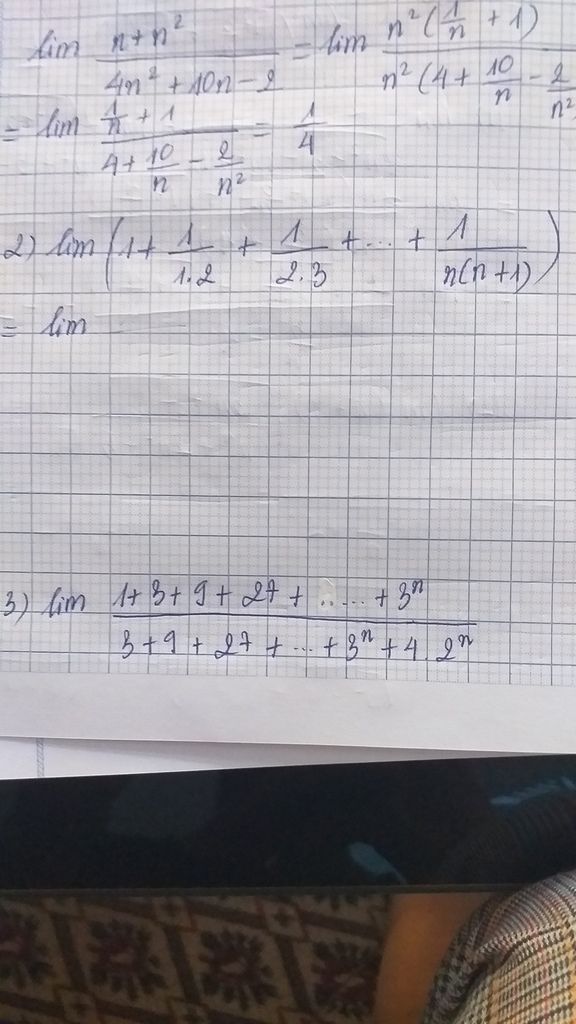 lim (n+n²)/(4n²+10n-2) = lim (n²(1/n + 1))/(n²(4+10/n - 2/n²
= lim (1/n + 1)/(4+10/n - 2/n²) = 1/4
2) lim (1+ 1/(1.2) + 1/(2.3) + ... + 1/(n(n+1)))
= lim
3) lim (1+3+9+27+.....+3ⁿ)/(3+9+27+...+3ⁿ+4.2ⁿ)